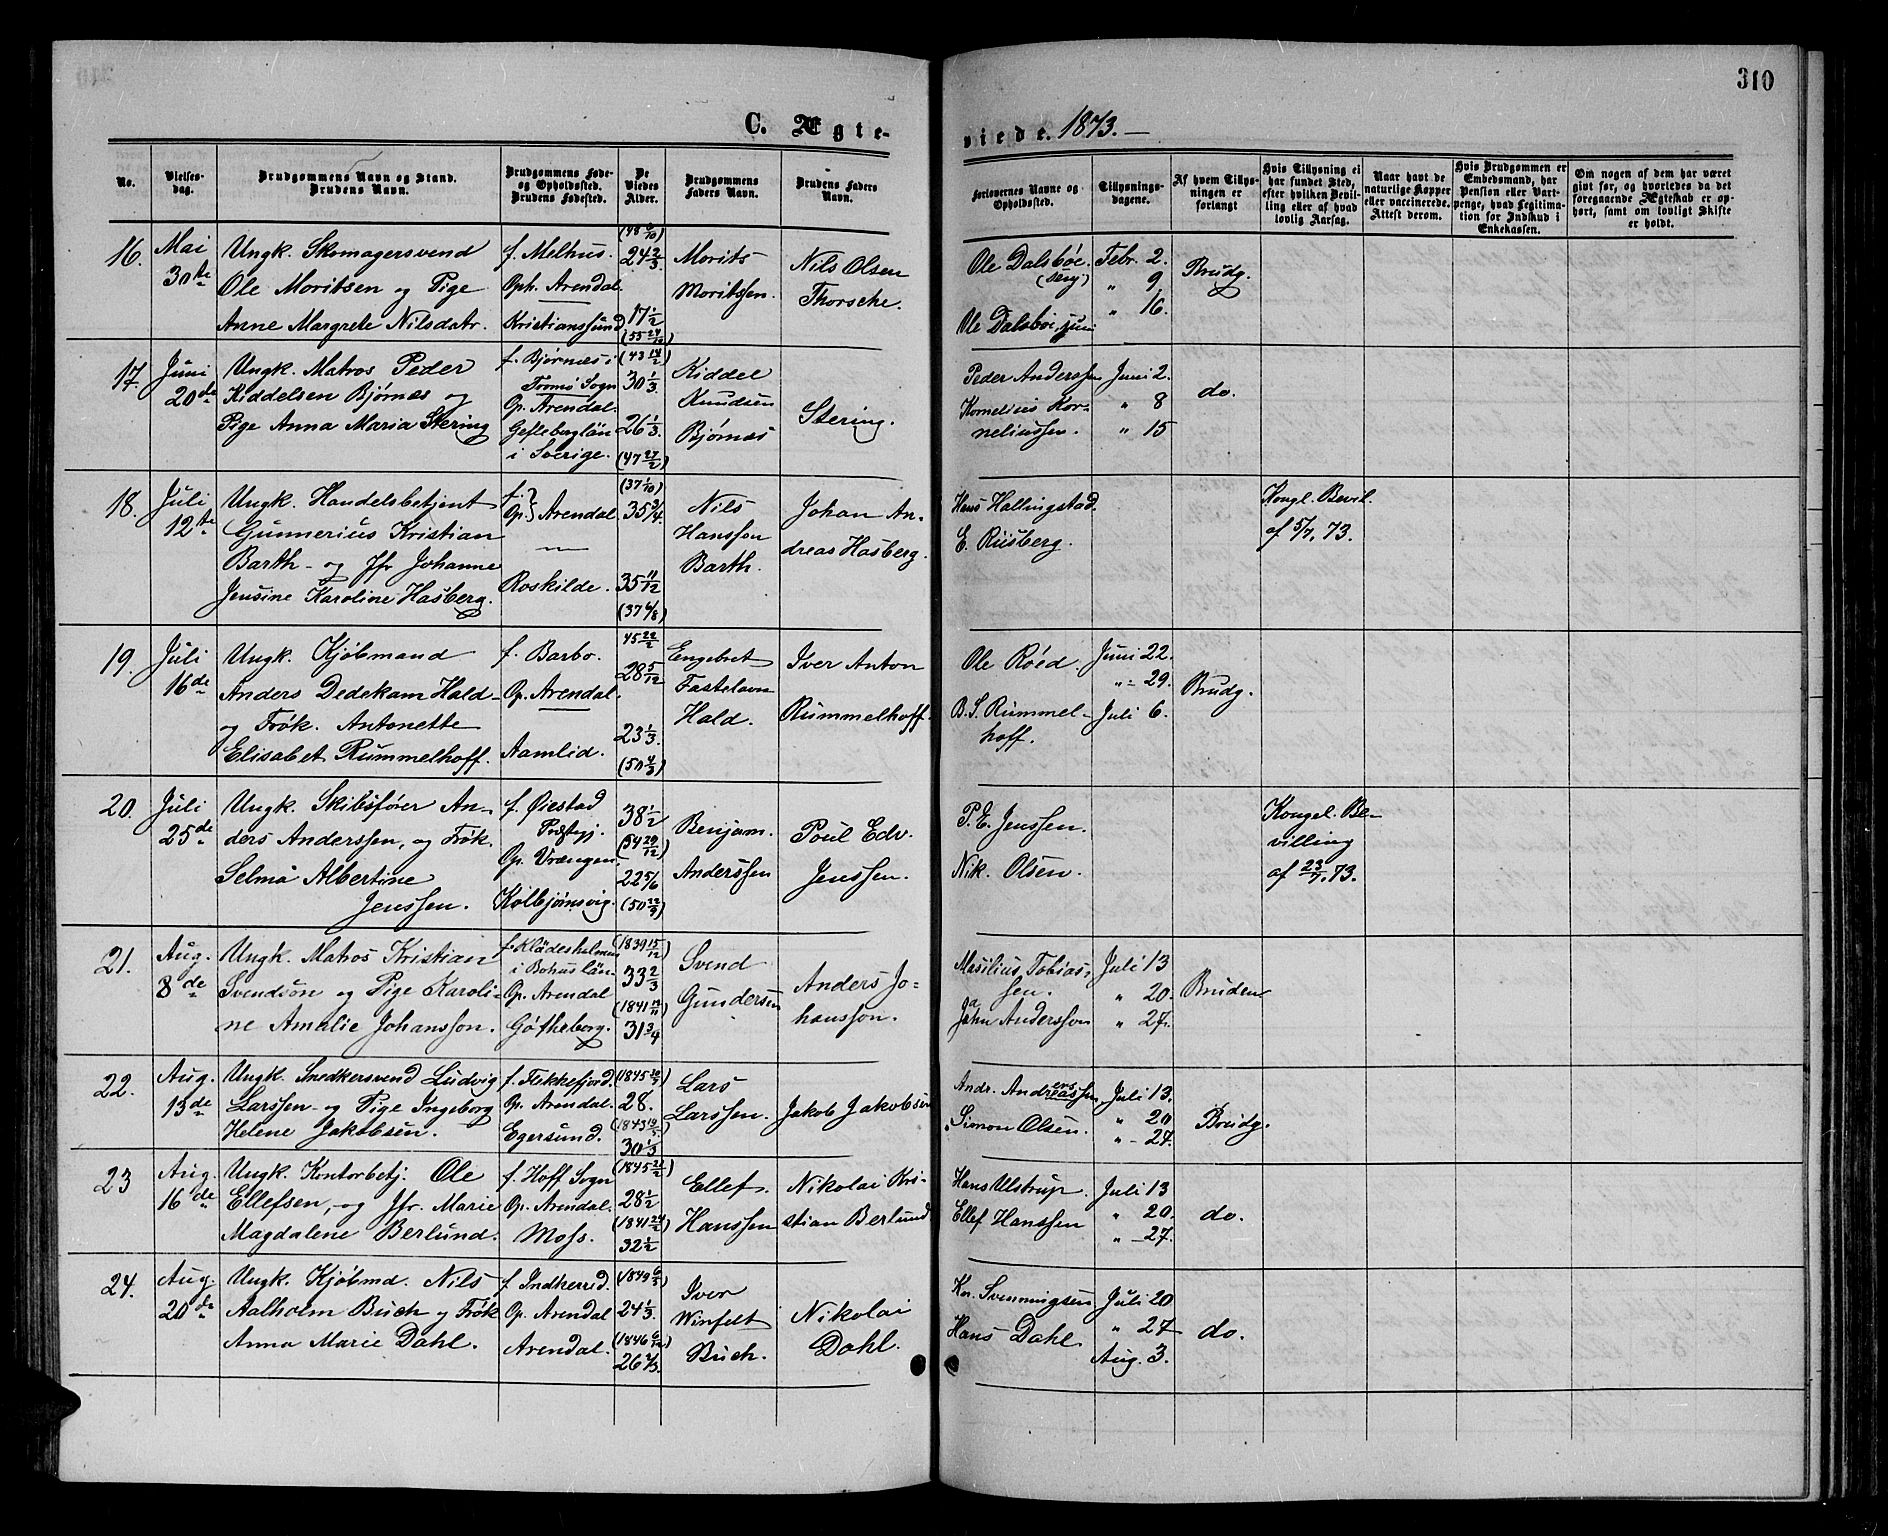 310
C. Ægte-
viede. 1873.—
No.
Vielses-
dag.
Brudgommens Navn og Stand.
Brudens Navn.
Brudgommens Føde-
og Opholdssted.
Brudens Fødested.
De
Viedes
Alder.
Brudgommens
Faders Navn.
Brudens Faders
Navn.
Forlovernes Navne og
Opholdssted.
Tillysnings-
dagene.
Af hvem Tillys-
ningen er
forlangt
Hvis Tillysning ei
har fundet Sted,
efter hvilken Bevil-
ling eller af hvad
lovlig Aarsag.
Naar havt de
naturlige Kopper
eller vaccinerede.
Attest derom.
Hvis Brudgommen er
Embedsmand, har
Pension eller Vart-
penge, hvad Legitima-
tion for Indskud i
Enkekassen.
Om nogen af dem har været
gift før, og hvorledes da det
foregaaende Ægteskab er op-
hørt, samt om lovligt Skifte
er holdt.
16.
Mai
30te
Ungk. Skomagersvend
Ole Moritsen og Pige
Anne Margrete Nilsdatr.
f. Melhus.
Oph. Arendal.
Kristianssund
(48 6/10)
24 2/3
17 1/2
(55 24/12)
Morits
Moritssen.
Nils Olsen
Thorsche.
Ole Dalsbøe.
(sen)
Ole Dalsbøe, jun
Febr. 2.
„ 9
„ 16.
Brudg.
17.
Juni
20de
Ungk. Matros Peder
Kiddelsen Bjørnæs og
Pige Anna Maria Stering
f. Bjørnæs i
Tromø Sogn
Op. Arendal.
Gefleborglän
i Sverige.
(43 14/2)
30 1/3
26 1/3.
(47 27/2)
Kiddel
Knudsen
Bjørnæs
Stering.
Peder Anderssen
Kornelius Kor-
neliussen.
Juni 2.
„ 8
„ 15
do.
18.
Juli
12te
Ungk. Handelsbetjent
Gunnerius Kristian
Barth - og Jfr Johanne
Jensine Karoline Hasberg.
f.
Op.} Arendal
Roskilde.
(37 1/10)
35 3/4.
35 11/12
(37 6/8)
Nils
Hanssen
Barth.
Johan An-
dreas Hasberg.
Hans Hallingstad.
E. Riisberg.
Kongl. Bevil.
af 5/7, 73.
19.
Juli
16de
Ungk. Kjøbmand
Anders Dedekam Hald-
og Frøk. Antonette
Elisabet Rummelhoff.
f. Barbo.
Op. Arendal.
Aamlid.
45 22/2
28 5/12
23 1/3.
(50 4/3)
Engebret
Fastelavn
Hald.
Iver Anton
Rummelhoff.
Ole Röed.
B. S. Rummel-
hoff.
Juni 22.
„ - 29.
Juli 6.
Brudg.
20.
Juli
25de
Ungk. Skibsfører An-
ders Anderssen, og Frøk.
Selma Albertine
Jenssen.
f. Øiestad
Præstegj.
Op. Vrængen.
Kolbjørnsvig.
38 1/2
(34 29/12)
22 5/6
(50 22/9)
Benjam.
Anderssen
Poul Edv.
Jenssen.
P. E. Jenssen.
Nik. Olsen.
Kongel. Be-
villing
af 23/7. 73.
21.
Aug.
8de
Ungk. Matros Kristian
Svendson og Pige Karoli-
ne Amalie Johansson.
f. Klädesholmen
i Bohuslän-
Op. Arendal
Götheborg.
(1839 15/12)
33 2/3
(1841 19/11)
31 3/4
Svend
Gundersen
Anders Jo-
hansson.
Masilius Tobias-
sen.
John Andersson
Juli 13
„ 20.
„ 27.
Bruden
22.
Aug.
13de
Ungk. Snedkersvend Ludvig
Larssen - og Pige Ingeborg
Helene Jakobsen.
f. Flekkefjord.
Op. Arendal.
Egersund.
28.
30 1/3
Lars
Larssen.
Jakob Jakobsen
Andr. Andreassen
Simon Olsen.
Juli 13.
„ 20
„ - 27.
Brudg.
23
Aug.
16de
Ungk. Kontorbetj. Ole
Ellefsen, - og Jfr. Marie
Magdalene Berlund.
f. Hoff Sogn
Op. Arendal.
Moss.
(1845 21/2)
28 1/2
(1841 24/2)
32 1/2
Ellef
Hanssen
Nikolai Kri-
stian Berlund
Hans Ulstrup.
Ellef Hanssen
Juli 13
„ 20.
„ - 27.
do.
24.
Aug.
20de
Ungk. Kjøbmd. Nils
Aalholm Buch og Frøk
Anna Marie Dahl.
f. Indherred.
Op. Arendal
Arendal.
(1849 6/3)
24 1/3.
(1846 6/12)
26 2/3.
Iver
Winfelt
Buch.
Nikolai
Dahl.
Kn. Svenningsen
Hans Dahl.
Juli 20
„ 27
Aug. 3.
do.